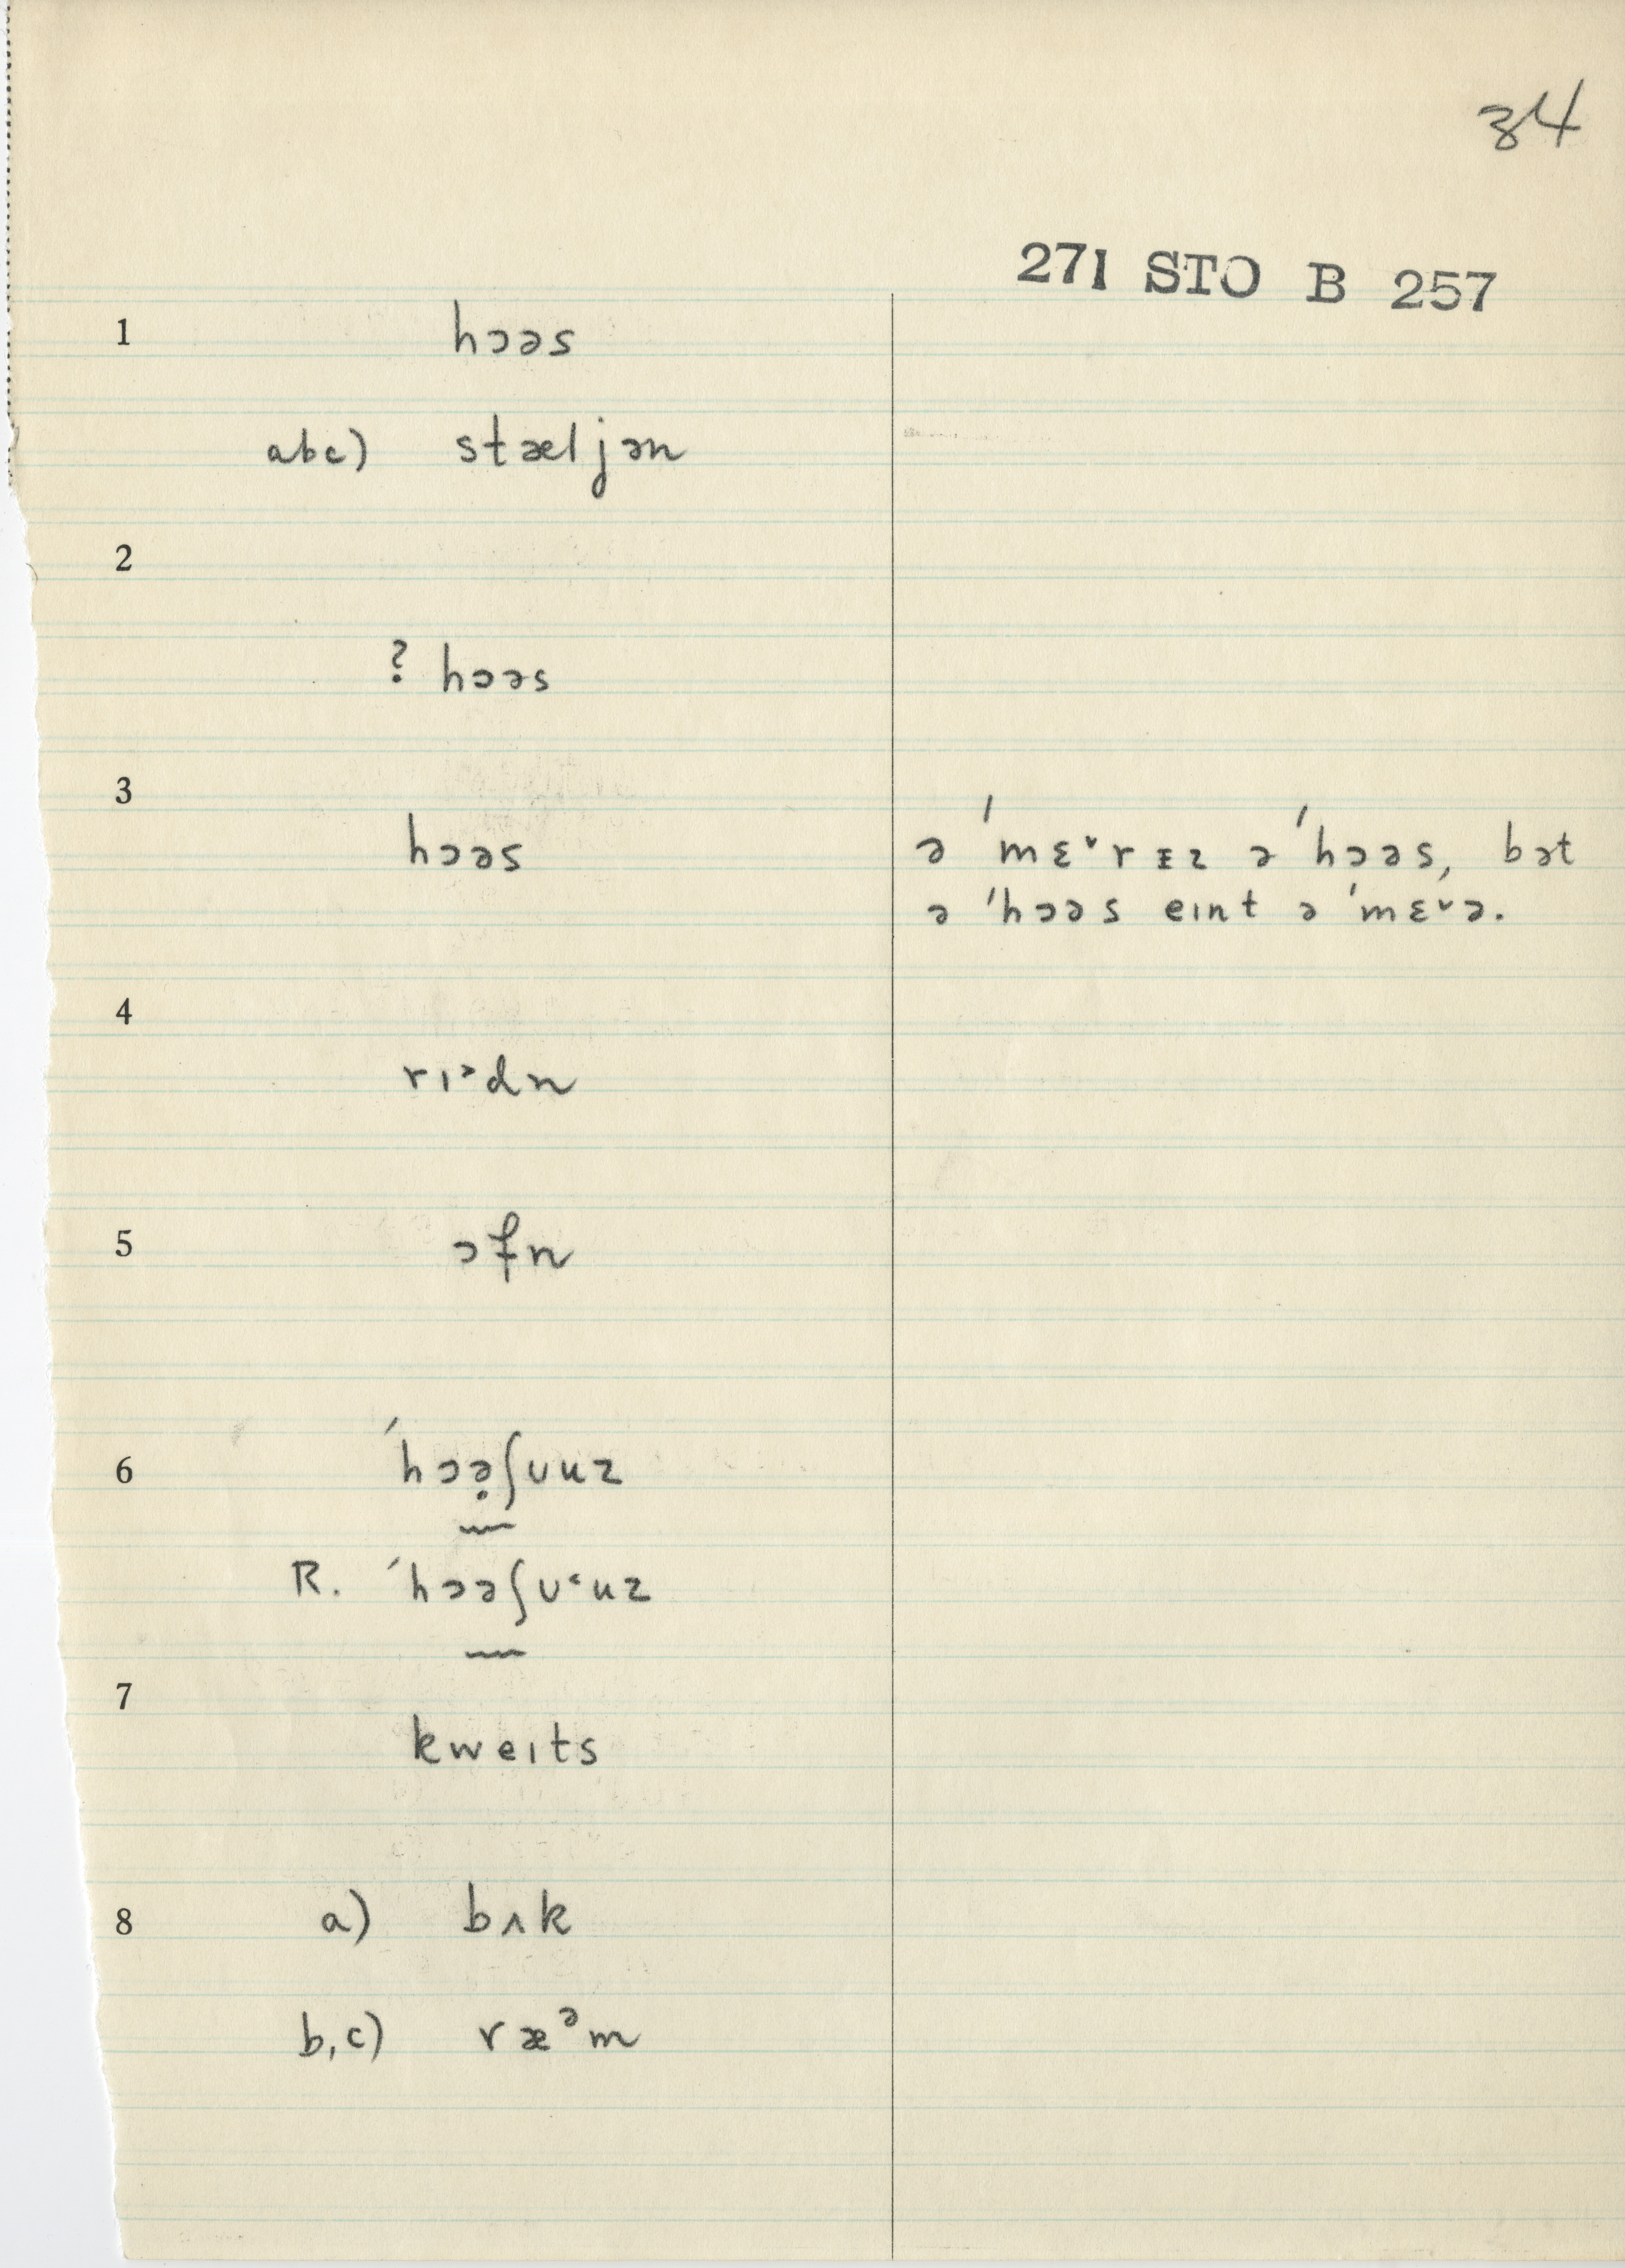 34
271 STO B 257
1 hɔəs
abc) stæljən
2
? hɔəs
3
hɔəs ə ˈmɛ˅rɪz ə ˈhɔəs, bət
ə ˈhɔəs eɪnt ə ˈmɛ˅ə.
4
rɪ˃dn
5 ɔfn
6 ˈhɔə̣ʃuuz
R. ˈhɔəʃʊ˂uz
7
kweɪts
8 a) bʌk
b,c) ræᵊm